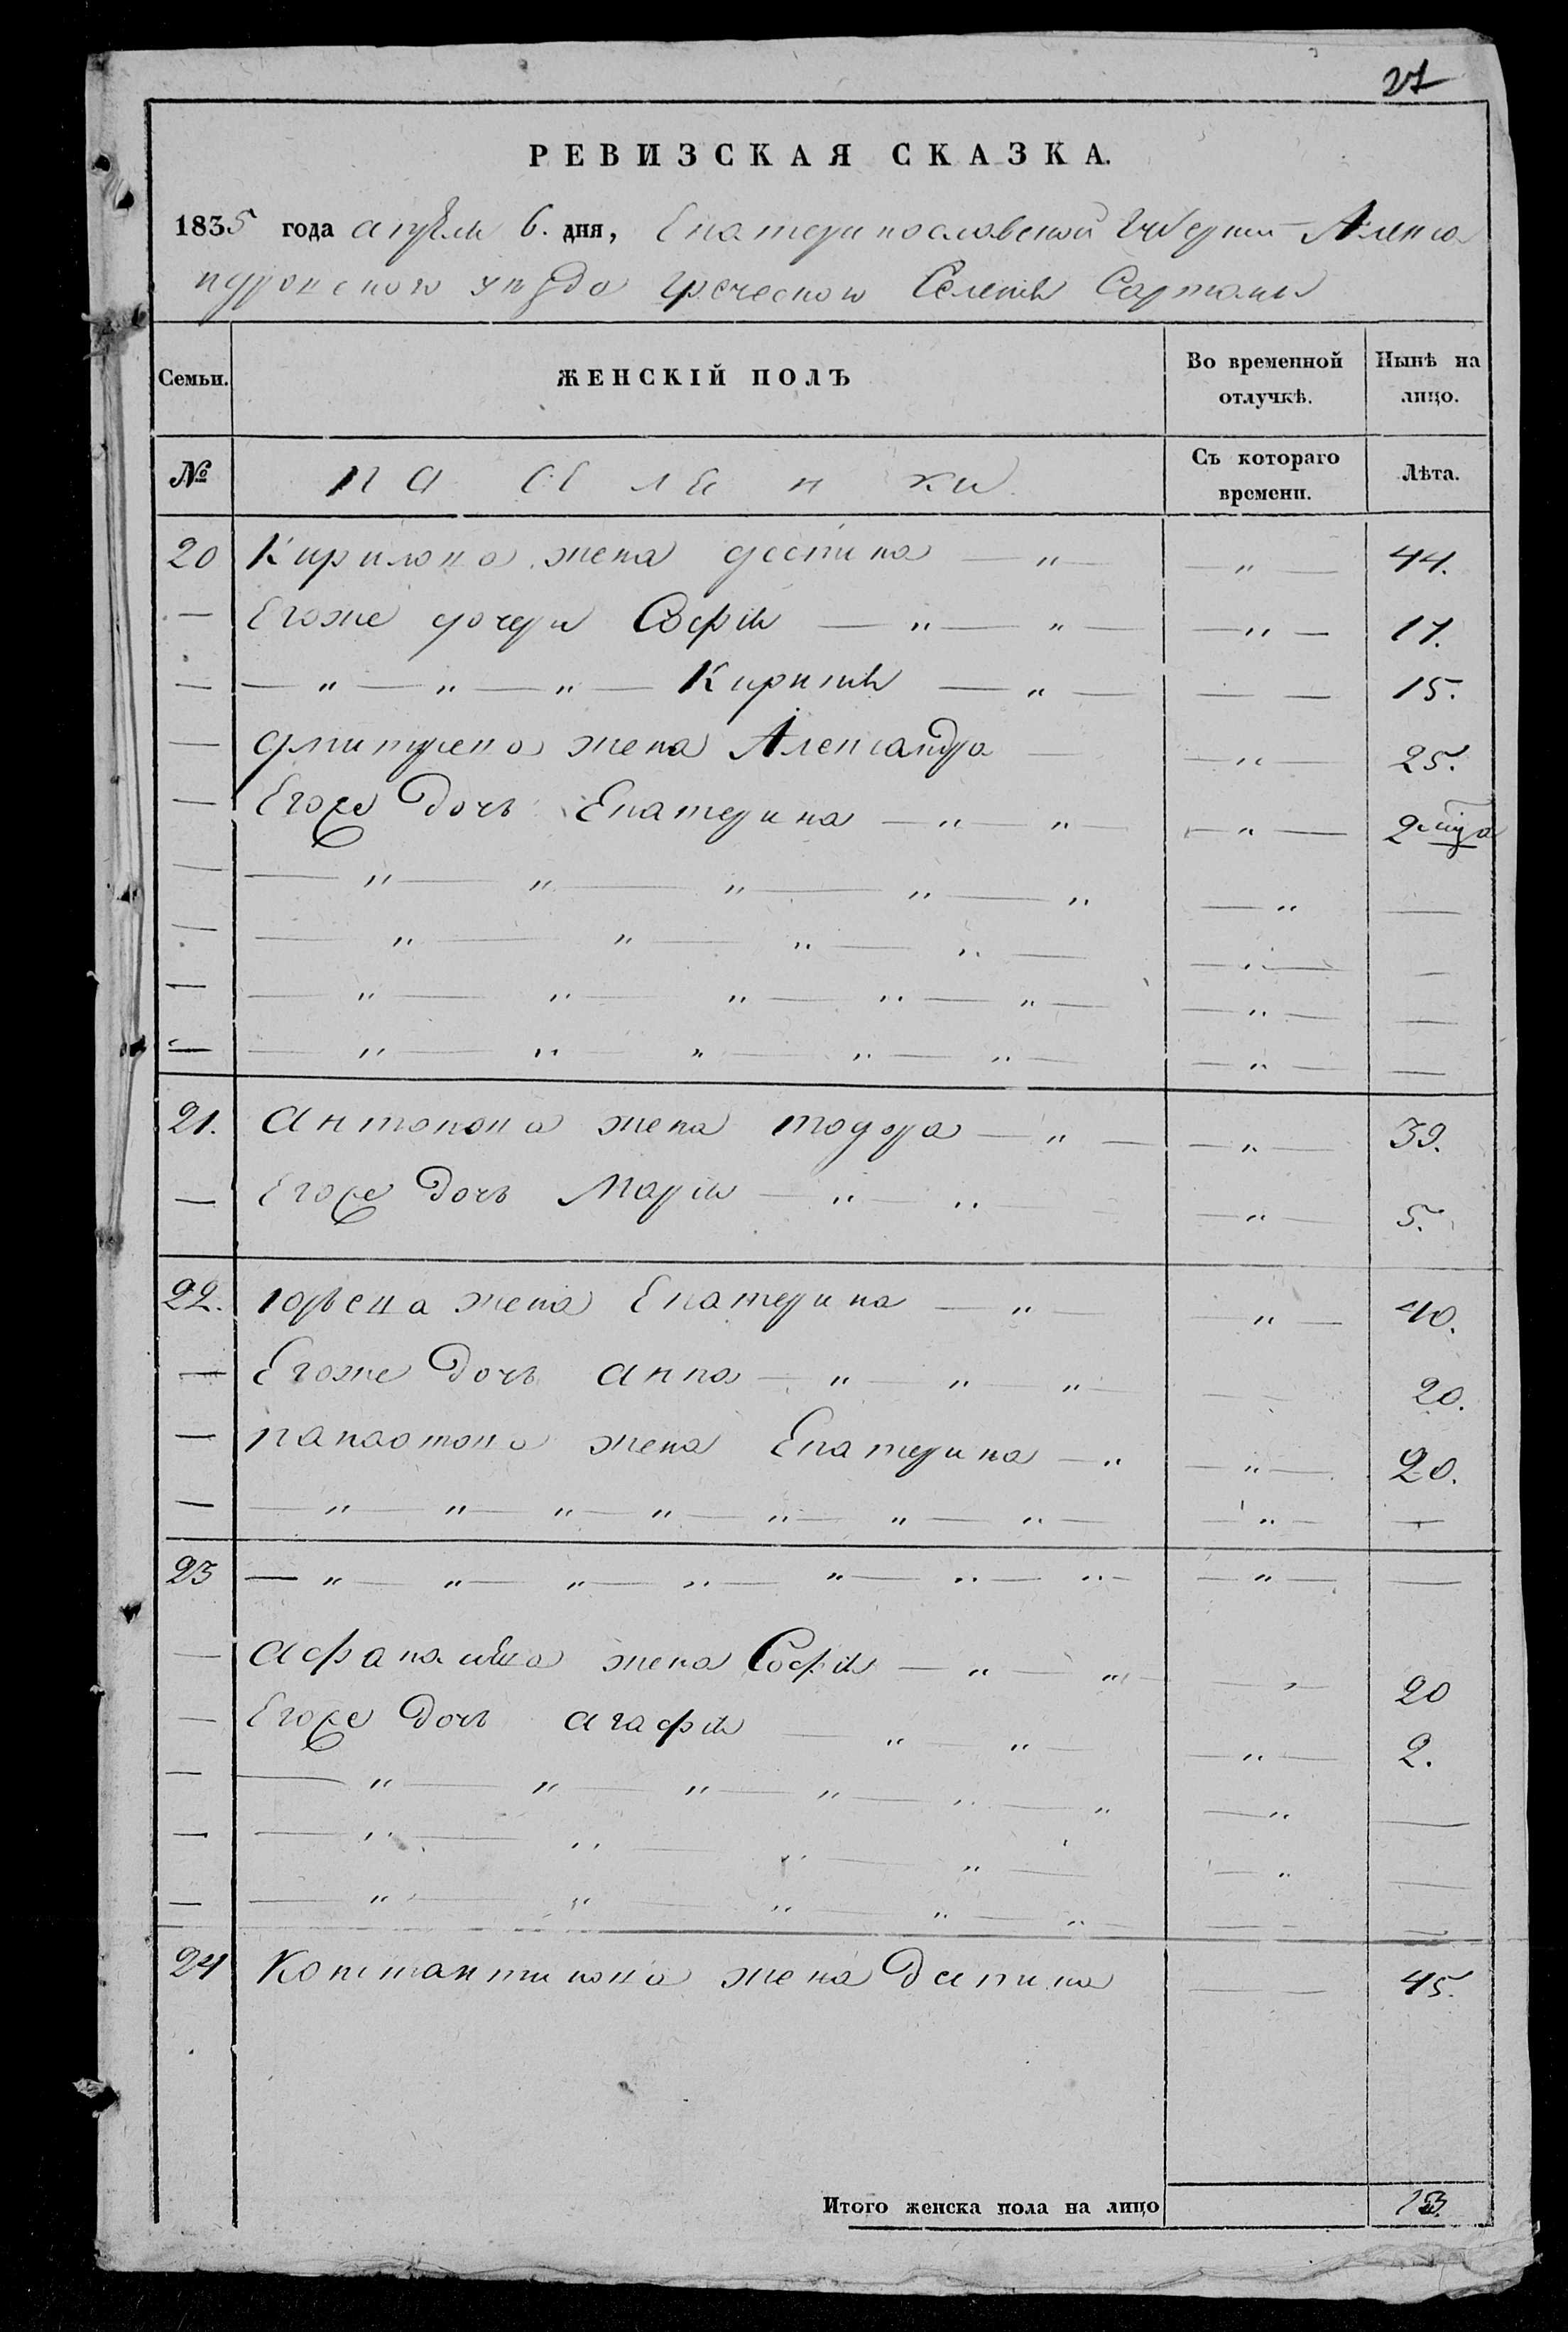 27
РЕВИЗСКАЯ СКАЗКА.
1835 года апреля 6. дня, Екатеринославской Губернии Алекса
ндровского уезда греческого Селения Сартаны
Семьи.
ЖЕНСКІЙ ПОЛЪ
Во временной отлучкѣ.
Нынѣ на лицо.
№
па се ле н ки
Съ котораго времени.
Лѣта.
20 Кирилова жена деспина — " — — " — 44.
— Егоже дочери Софія — " — " — — " — 17.
— — " — " — " — Кирикія — " — — — 15.
— дмитриева жена Александра — — " — 25.
— Егоже Дочь Екатерина — " — " — — " — 2 мца
— — " — " — " — " — " — " —
— — " — " — " — " — — " — —
— — " — " — " — " — " — — " — —
— — " — " — " — " — " — — " — —
21. Антонова жена тодора — " — — " — 39.
— Егоже Дочь Марія — " — " — — " — 5.
22. юрьева жена Екатерина — " — — " — 40.
— Егоже Дочь анна — " — " — " — — — 20.
— жена Екатерина — " — " — 20.
— — " — " — " — " — " — " — " — — " — —
23 — " — " — " — " — " — " — " — — " — —
— Афанасіева жена Софія — " — " — — " — 20
— Егоже Дочь агафія — " — " — — " — 2.
— — " — " — " — " — " — " — " —
— — " — " — " — " — — " — —
— — " — " — " — " — " — — — —
24 Константинова жена Деспина — — 45.
Итого женска пола на лицо 13.